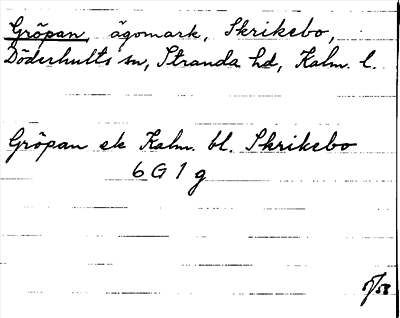 Gröpan, ägomark, Skrikebo,
Döderhults sn, Stranda hd, Kalm. l.
Gröpan ek Kalm. bl. Skrikebo
6 G 1 g